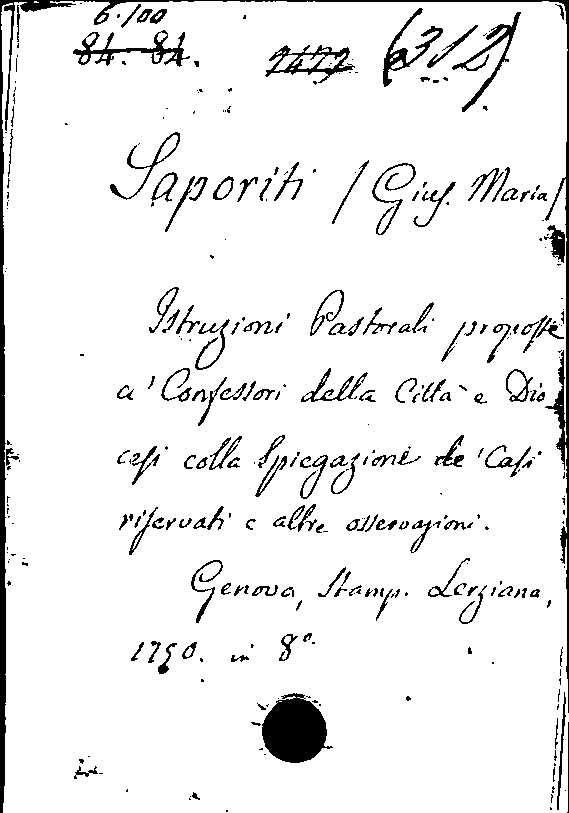 6.100
84. 84. 7479 (312)
Saporiti / Gius. Maria /
Istruzioni Pastorali proposte
a' Confessori della Città e Dio
cesi colla Spiegazione de' Casi
riservati e altre osservazioni.
Genova, Stamp. Lerziana,
1750. in 8º.